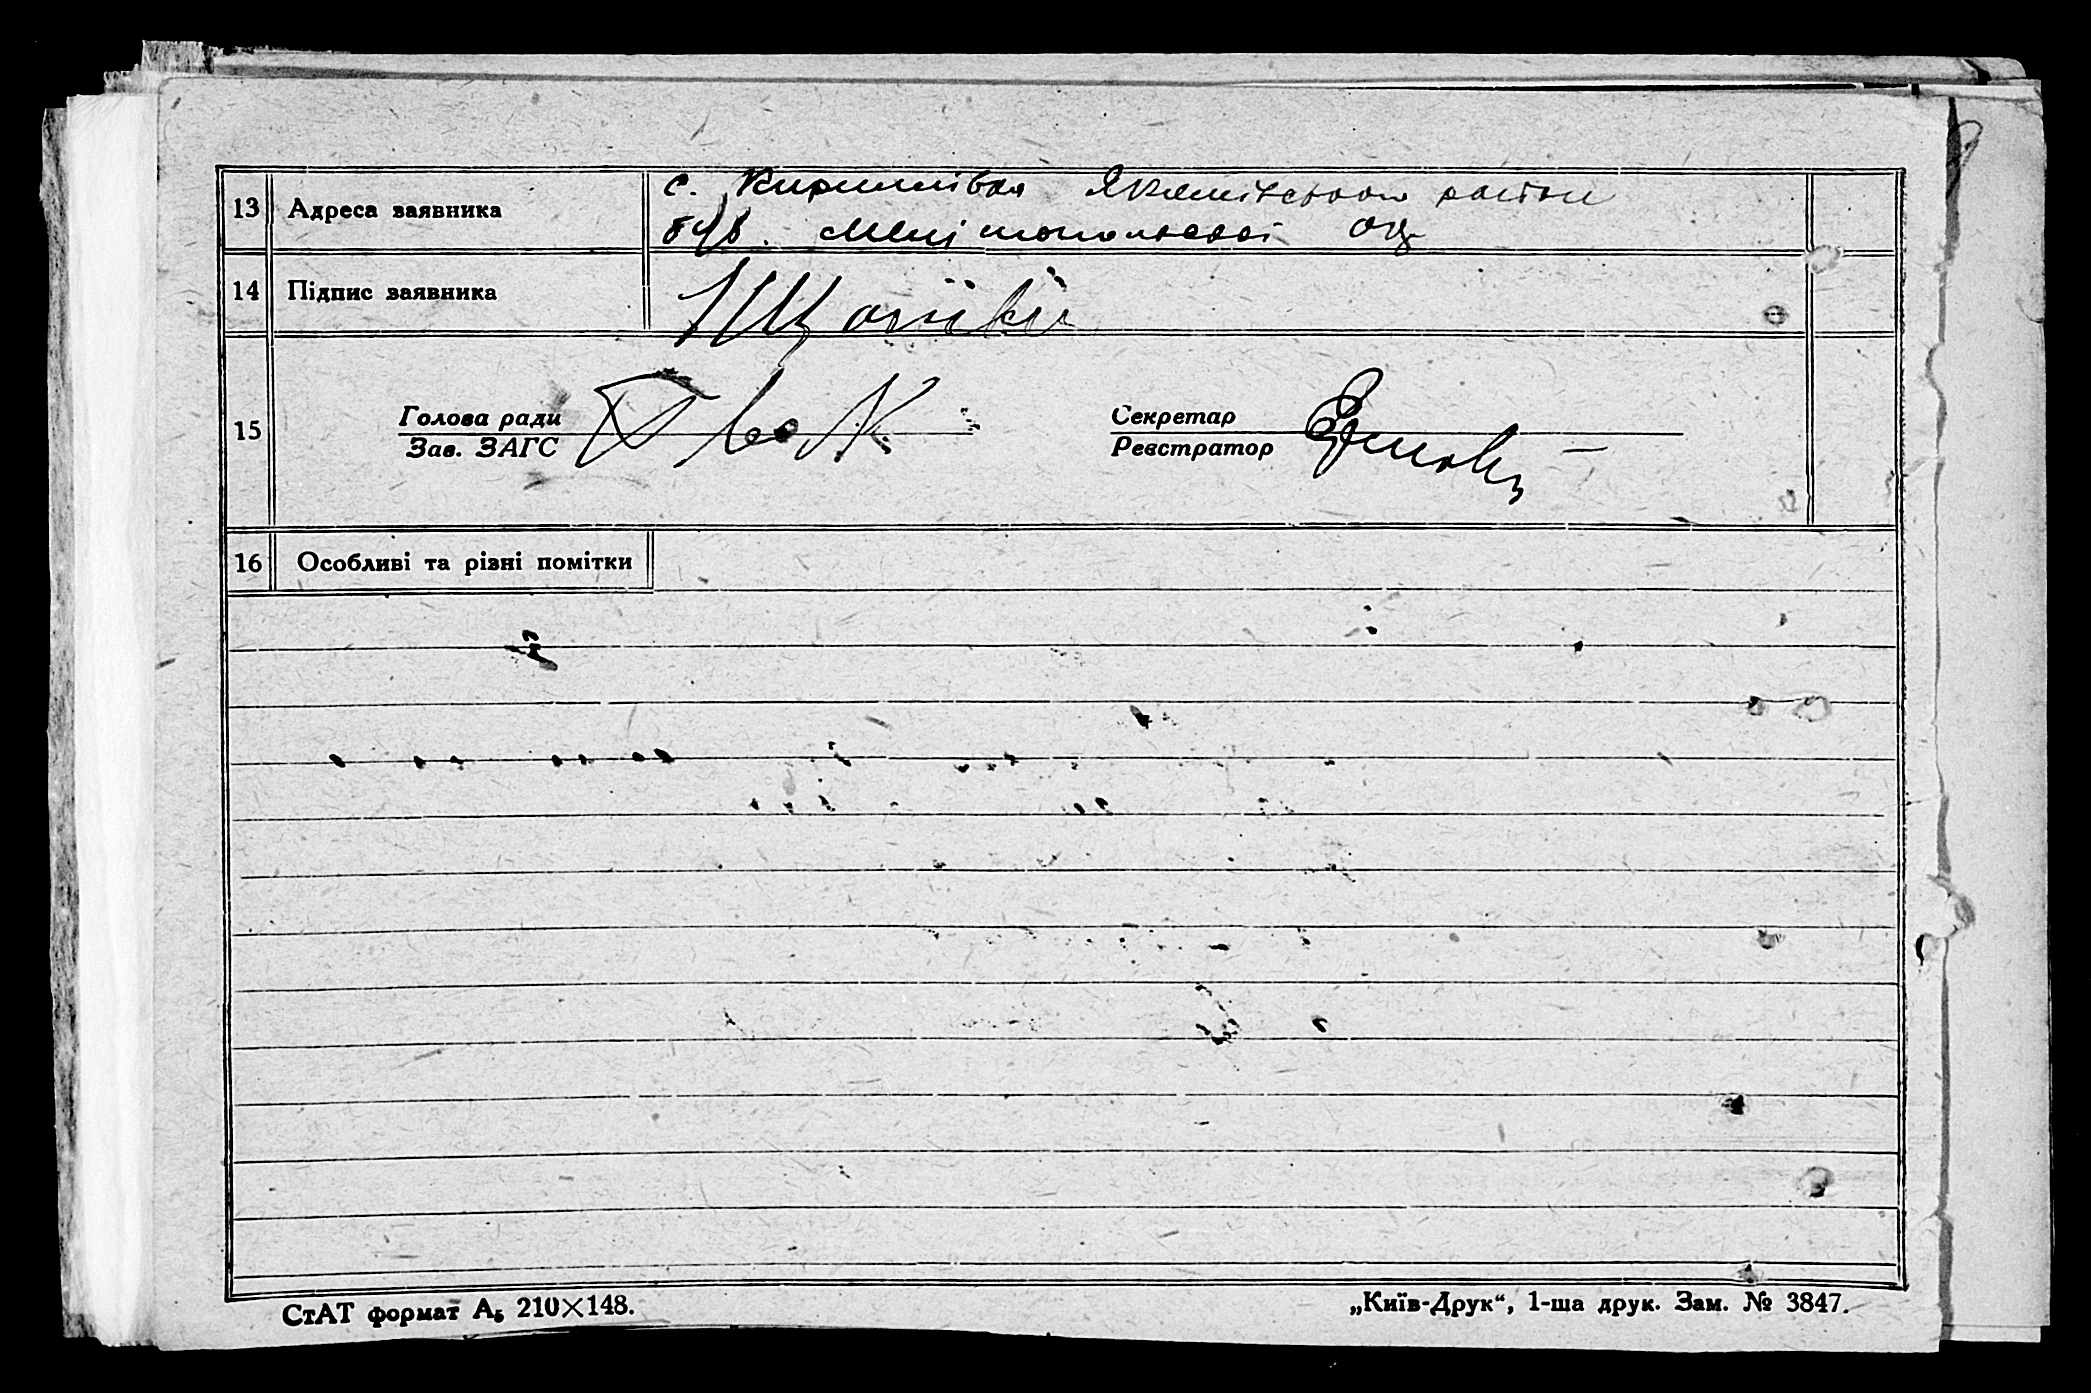 13 Адреса заявника с. Кирилівка Якимівського район
був. Мелітопольської окр
14 Підпис заявника
15 Голова ради Секретар
Зав. ЗАГС Реєстратор
16 Особливі та різні помітки
СтАТ формат А₅ 210×148. „Київ-Друк“, 1-ша друк. Зам. № 3847.